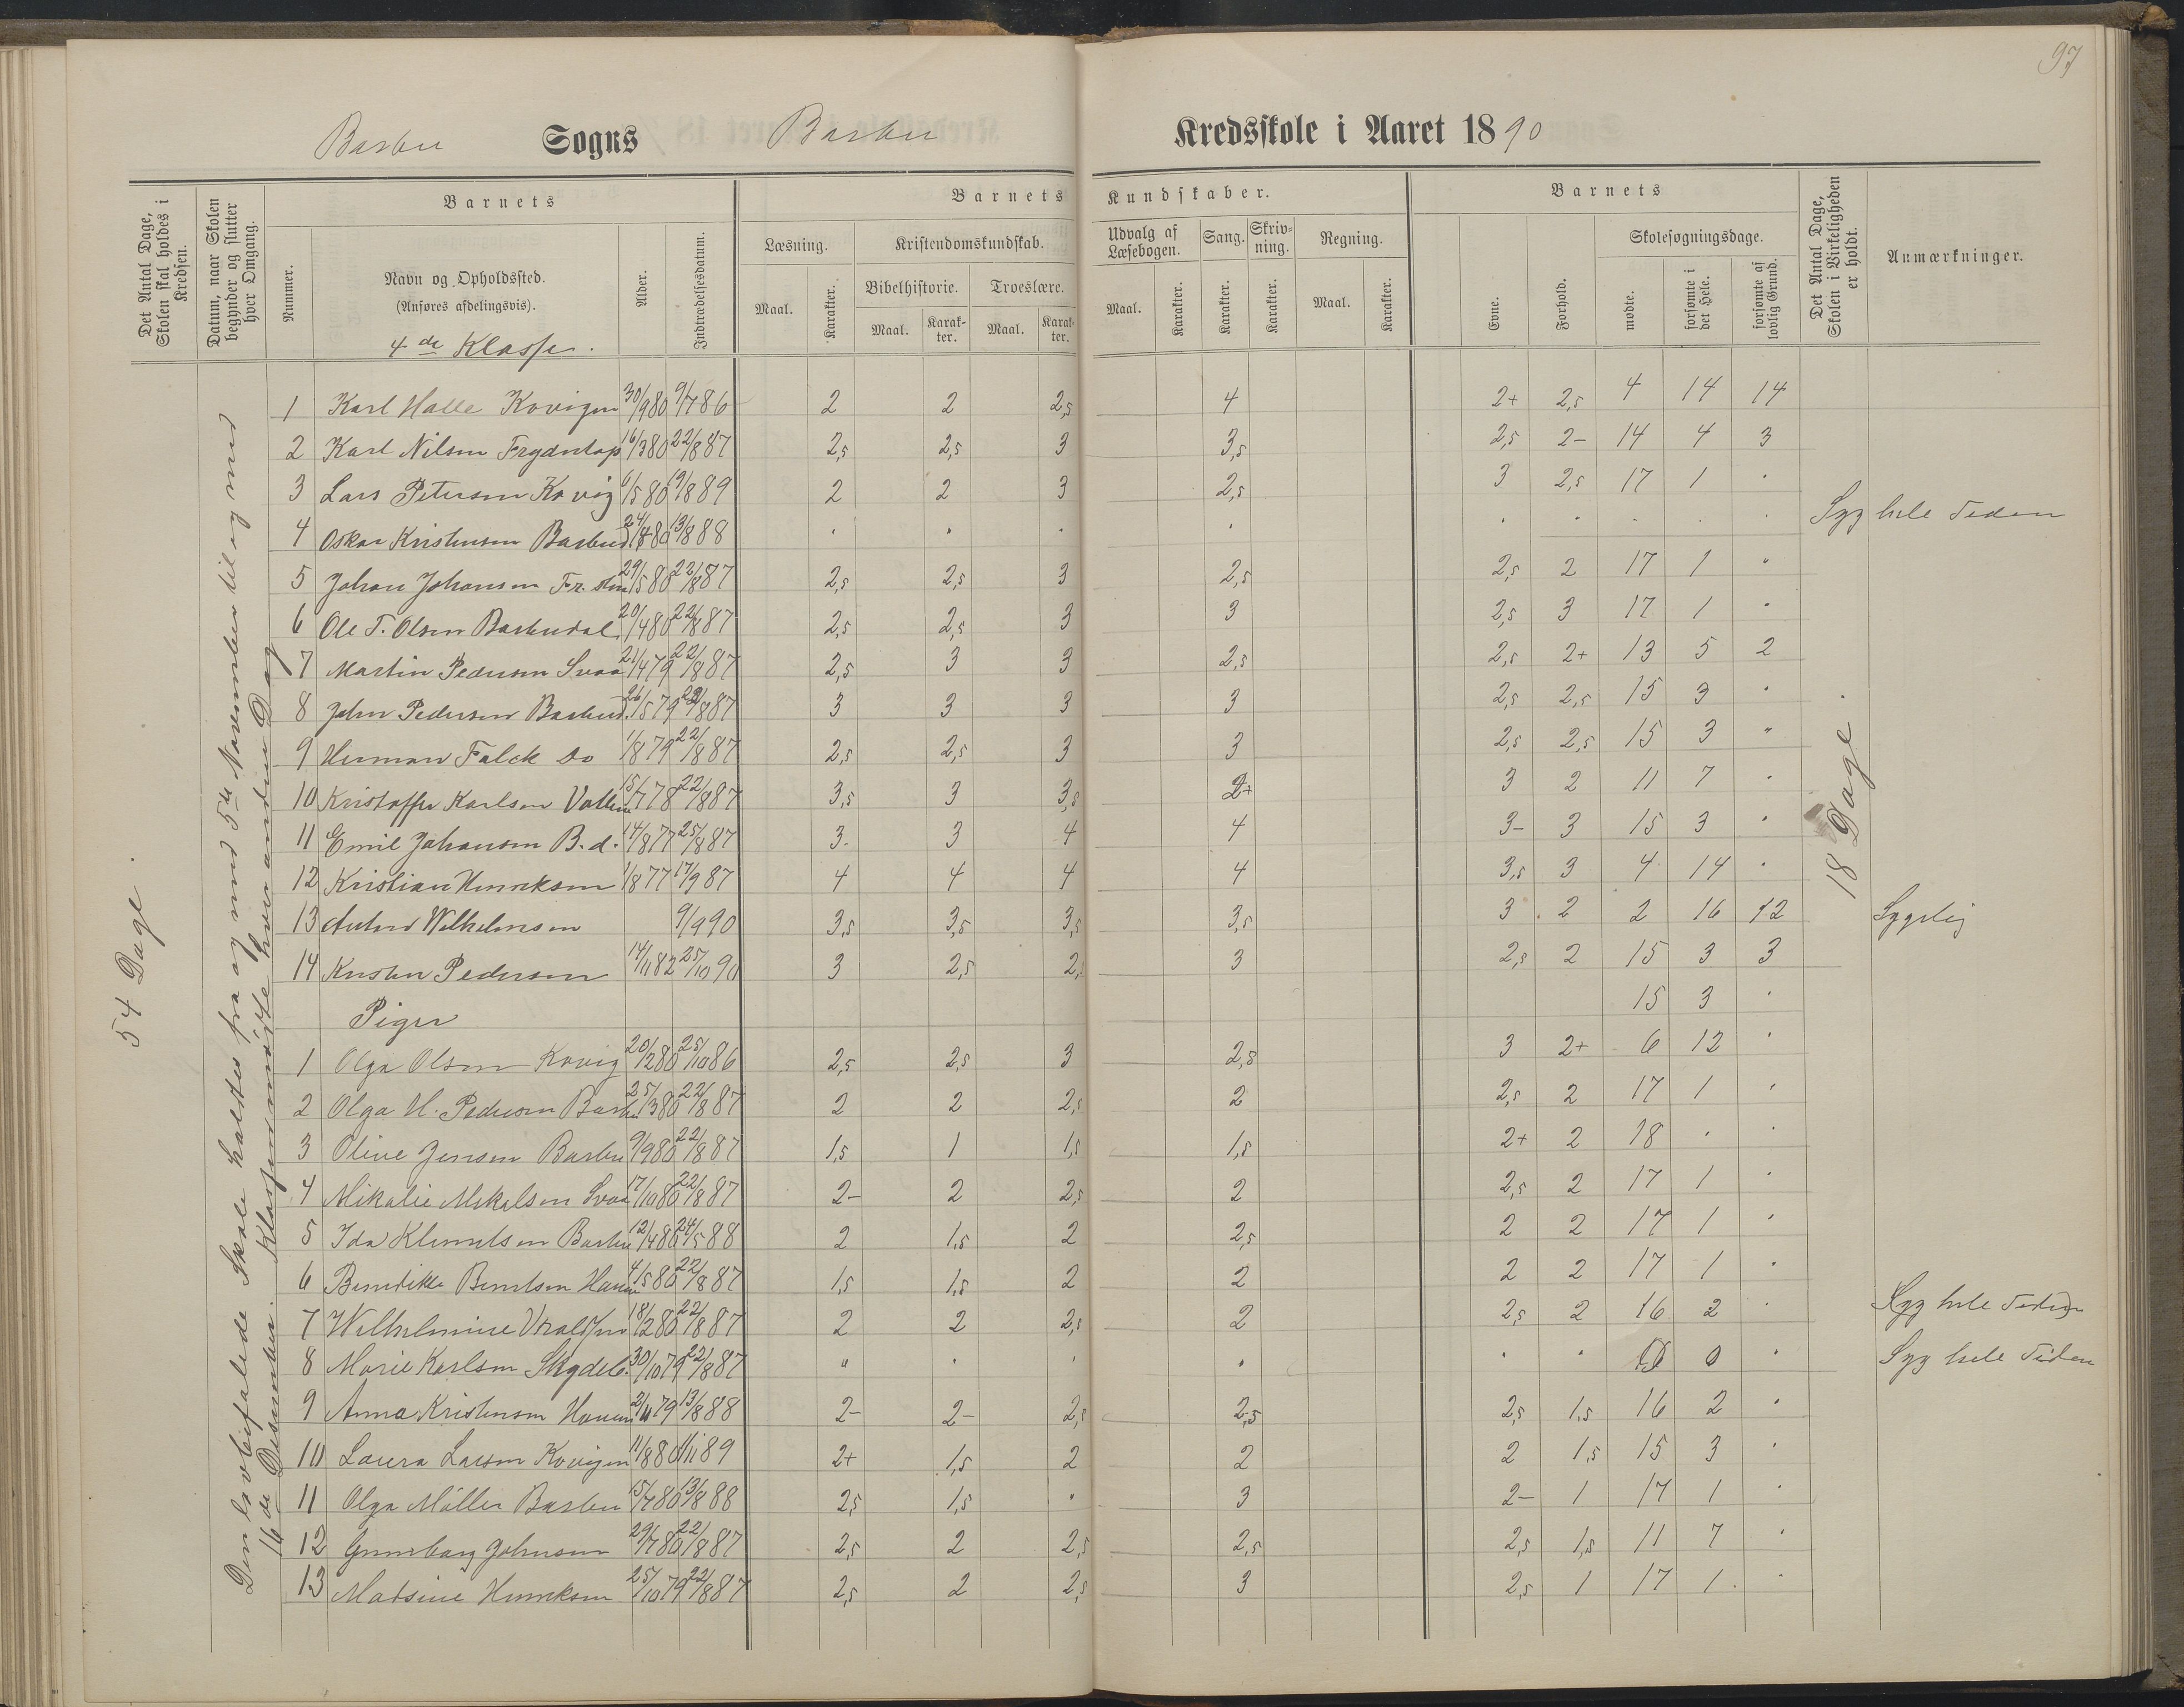 97
Barbu Sogns Barbu Kredsskole i Aaret 1890
Det Antal Dage, Skolen skal holdes i Kredsen.
Datum, naar Skolen begynder og slutter hver Omgang.
Barnets
Nummer.
Navn og Opholdssted.
(Anføres afdelingsvis).
4de Klasse.
Alder.
Indtrædelsesdatum.
Barnets Kundskaber.
Læsning.
Maal. Karakter.
Kristendomskundskab.
Bibelhistorie. Troeslære.
Maal. Karakter. Maal. Karakter.
Udvalg af Læsebogen.
Maal. Karakter.
Sang.
Karakter.
Skrivning.
Karakter.
Regning.
Maal. Karakter.
Barnets
Evne. Forhold.
Skolesøgningsdage.
mødte. forsømte i det Hele. forsømte af lovlig Grund.
Det Antal Dage, Skolen i Virkeligheden er holdt.
Anmærkninger.
54 Dage.
Den lovbefalede Skole holdtes fra og med 5te November til og med
16de Desember. Klassen mødte hver anden Dag
18 Dage.
1 Karl Halle Kovigen 30/9 80 9/7 86 2 2 2,5 4 2+ 2,5 4 14 14
2 Karl Nilsen 16/3 80 22/8 87 2,5 2,5 3 3,5 2,5 2- 14 4 3
3 Lars Petersen Kovig 6/5 80 19/8 89 2 2 3 2,5 3 2,5 17 1 .
4 Oskar Kristensen Barbud. 24/8 80 13/8 88 . . . . . . . . . Syg hele Tiden
5 Johan Johansen Fr. sten 29/5 80 22/8 87 2,5 2,5 3 2,5 2,5 2 17 1 "
6 Ole T. Olsen Barbudal 20/4 80 22/8 87 2,5 2,5 3 3 2,5 3 17 1 .
7 Martin Pedersen Svaa 21/4 79 22/8 87 2,5 3 3 2,5 2,5 2+ 13 5 2
8 John Pedersen Barbud. 26/5 79 22/8 87 3 3 3 3 2,5 2,5 15 3 .
9 Herman Falck Do 1/8 79 22/8 87 2,5 2,5 3 3 2,5 2,5 15 3 "
10 Kristoffer Karlsen 15/7 78 22/8 87 3,5 3 3,5 2+ 3 2 11 7 .
11 Emil Johansen B.d. 14/8 77 25/8 87 3. 3 4 4 3- 3 15 3 .
12 Kristian Henriksen 1/8 77 17/9 87 4 4 4 4 3,5 3 4 14 .
13 Anton Wilhelmsen 9/9 90 3,5 3,5 3,5 3,5 3 2 2 16 12 Sygelig
14 Kristen Pedersen 14/11 82 25/10 90 3 2,5 2,5 3 2,5 2 15 3 3
Piger 15 3 .
1 Olga Olsen Kovig 20/2 80 25/10 86 2,5 2,5 3 2,5 3 2+ 6 12 .
2 Olga H. Pedersen Barbu 25/3 80 22/8 87 2 2 2,5 2 2,5 2 17 1 .
3 Oline Jensen Barbu 9/9 80 22/8 87 1,5 1 1,5 1,5 2+ 2 18 . .
4 Mikalie Mikalsen Svaa 17/10 80 22/8 87 2- 2 2,5 2 2,5 2 17 1 .
5 Ida Klemetsen Barbu 12/4 80 24/5 88 2 1,5 2 2,5 2 2 17 1 .
6 Benedikte Berntsen Haven 4/5 80 22/8 87 1,5 1,5 2 2 2 2 17 1 .
7 Wilhelmine 18/2 80 22/8 87 2 2 2,5 2 2,5 2 16 2 . Syg hele Tiden
8 Marie Karlsen 30/10 79 22/8 87 " . . . . . 0 0 . Syg hele Tiden
9 Anna Kristensen Haven 2/11 79 13/8 88 2- 2- 2,5 2,5 2,5 1,5 16 2 .
10 Laura Larsen Kovigen 11/8 80 1/11 89 2+ 1,5 2 2 2 1,5 15 3 .
11 Olga Möller Barbu 15/7 80 13/8 88 2,5 1,5 . 3 2- 1 17 1 .
12 Gunnborg Johnsen 29/7 80 22/8 87 2,5 2 2,5 2,5 2,5 1,5 11 7 .
13 Matsine Henriksen 25/10 79 22/8 87 2,5 2 2,5 3 2,5 1 17 1 .